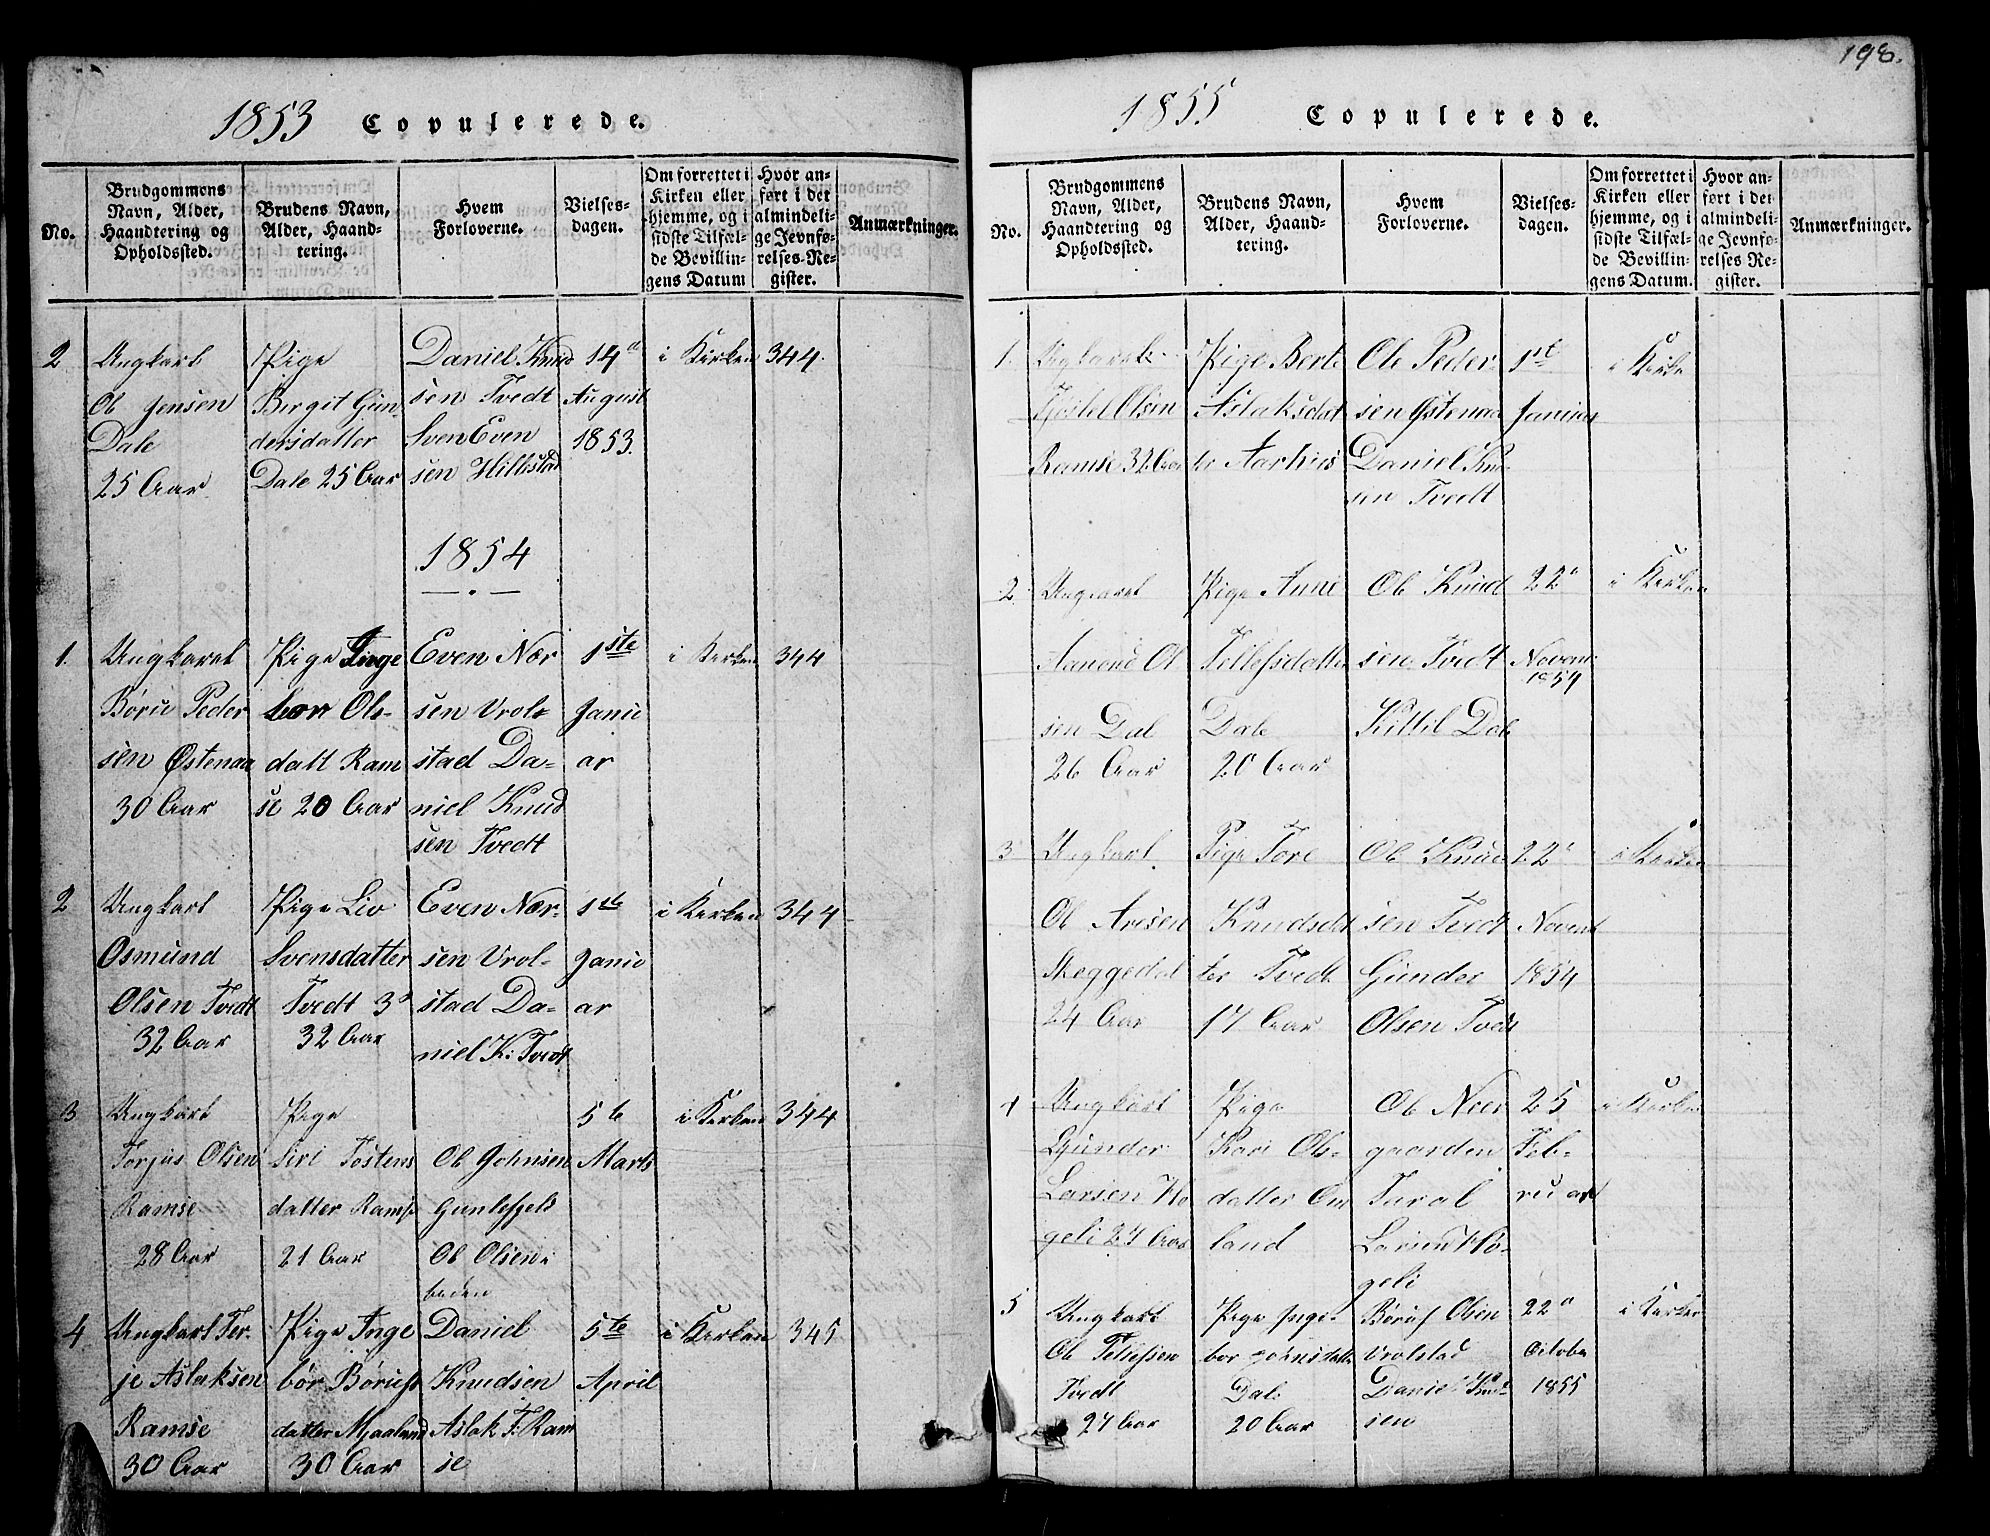 198.
1853 Copulerede.
No.
Brudgommens Navn, Alder, Haandtering og Opholdssted.
Brudens Navn, Alder, Haandtering.
Hvem Forloverne.
Vielsesdagen.
Om forrettet i Kirken eller hjemme, og i sidste Tilfælde Bevillingens Datum
Hvor anført i det almindelige Jevnførelses-Register.
Anmærkninger.
2
Ungkarl
Ole Jensen
Dale
25 Aar
Pige
Birgit Gun
dersdatter
Dale 25 Aar
Daniel Knud
sen Tvedt
Sven Even
sen Hillestad
14de
August
1853.
i Kirken
344.
1854
1.
Ungkarl
Børue Peder
sen Østenaa
30 Aar
Pige Inge
bor Ols-
datt Ram
se 20 Aar
Even Nær
sen Vrol-
stad Da-
niel Knud
sen Tvedt
1ste
Janu
ar
i Kirken
344
2
Ungkarl
Osmund
Olsen Tvedt
32 Aar
Pige Liv
Svensdatter
Tvedt
32 Aar
Even Nær-
sen Vrol-
stad Da-
niel K: Tvedt
1ste
Janu
ar
i Kirken
344
3
Ungkarl
Torjus Olsen
Ramse
28 Aar
Pige
Siri Tostens
datter Ramse
21 Aar
Ole Johnsen
Ole Olsen
5te
Marts
i Kirken
344
4
Ungkarl Ter-
je Aslaksen
Ramse
30 Aar
Pige Inge
bor Børues
datter Mjaaland
30 Aar
Daniel
Knudsen
Aslak T: Ram
se
5te
April
i Kirken
345
1855 Copulerede.
No.
Brudgommens Navn, Alder, Haandtering og Opholdssted.
Brudens Navn, Alder, Haandtering.
Hvem Forloverne.
Vielsesdagen.
Om forrettet i Kirken eller hjemme, og i sidste Tilfælde Bevillingens Datum.
Hvor anført i det almindelige Jevnførelses-Register.
Anmærkninger.
1.
Ungkarl
Kjøstel Olsen
Ramse 32 Aar
Pige Berte
Aslaksdat
ter Aarhus
Ole Peder-
sen Østenaa
Daniel Knu
sen Tvedt
1ste
Januar
i Kirke
2
Ungkarl
Aanond Ol
sen Dal
26 Aar
Pige Anne
Tellefsdatter
Dale
20 Aar
Ole Knud
sen Tvedt
Kittil Dale
22de
Novem
1854
i Kirken
3
Ungkarl
Ole Aresen
Skeggedal
24 Aar
Pige Tore
Knudsdat
ter Tvedt
17 Aar
Ole Knud
sen Tvedt
Gunder
Olsen Tvedt
22de
Novem
1854
i Kirken
4
Ungkarl
Gunder
Larsen Ho
geli 27 Aar
Pige
Kari Ols-
datter Om
land
Ole Neer
gaarden
Taral
Larsen Ho-
geli
25
Feb-
ruar
i Kirken
5
Ungkarl
Ole Tellefsen
Tvedt
27 Aar
Pige Inge-
bor Johnsdatter
Dale
20 Aar
Børuf Olsen
Vrolstad
Daniel Knud
sen
22de
October
1855
i Kirken